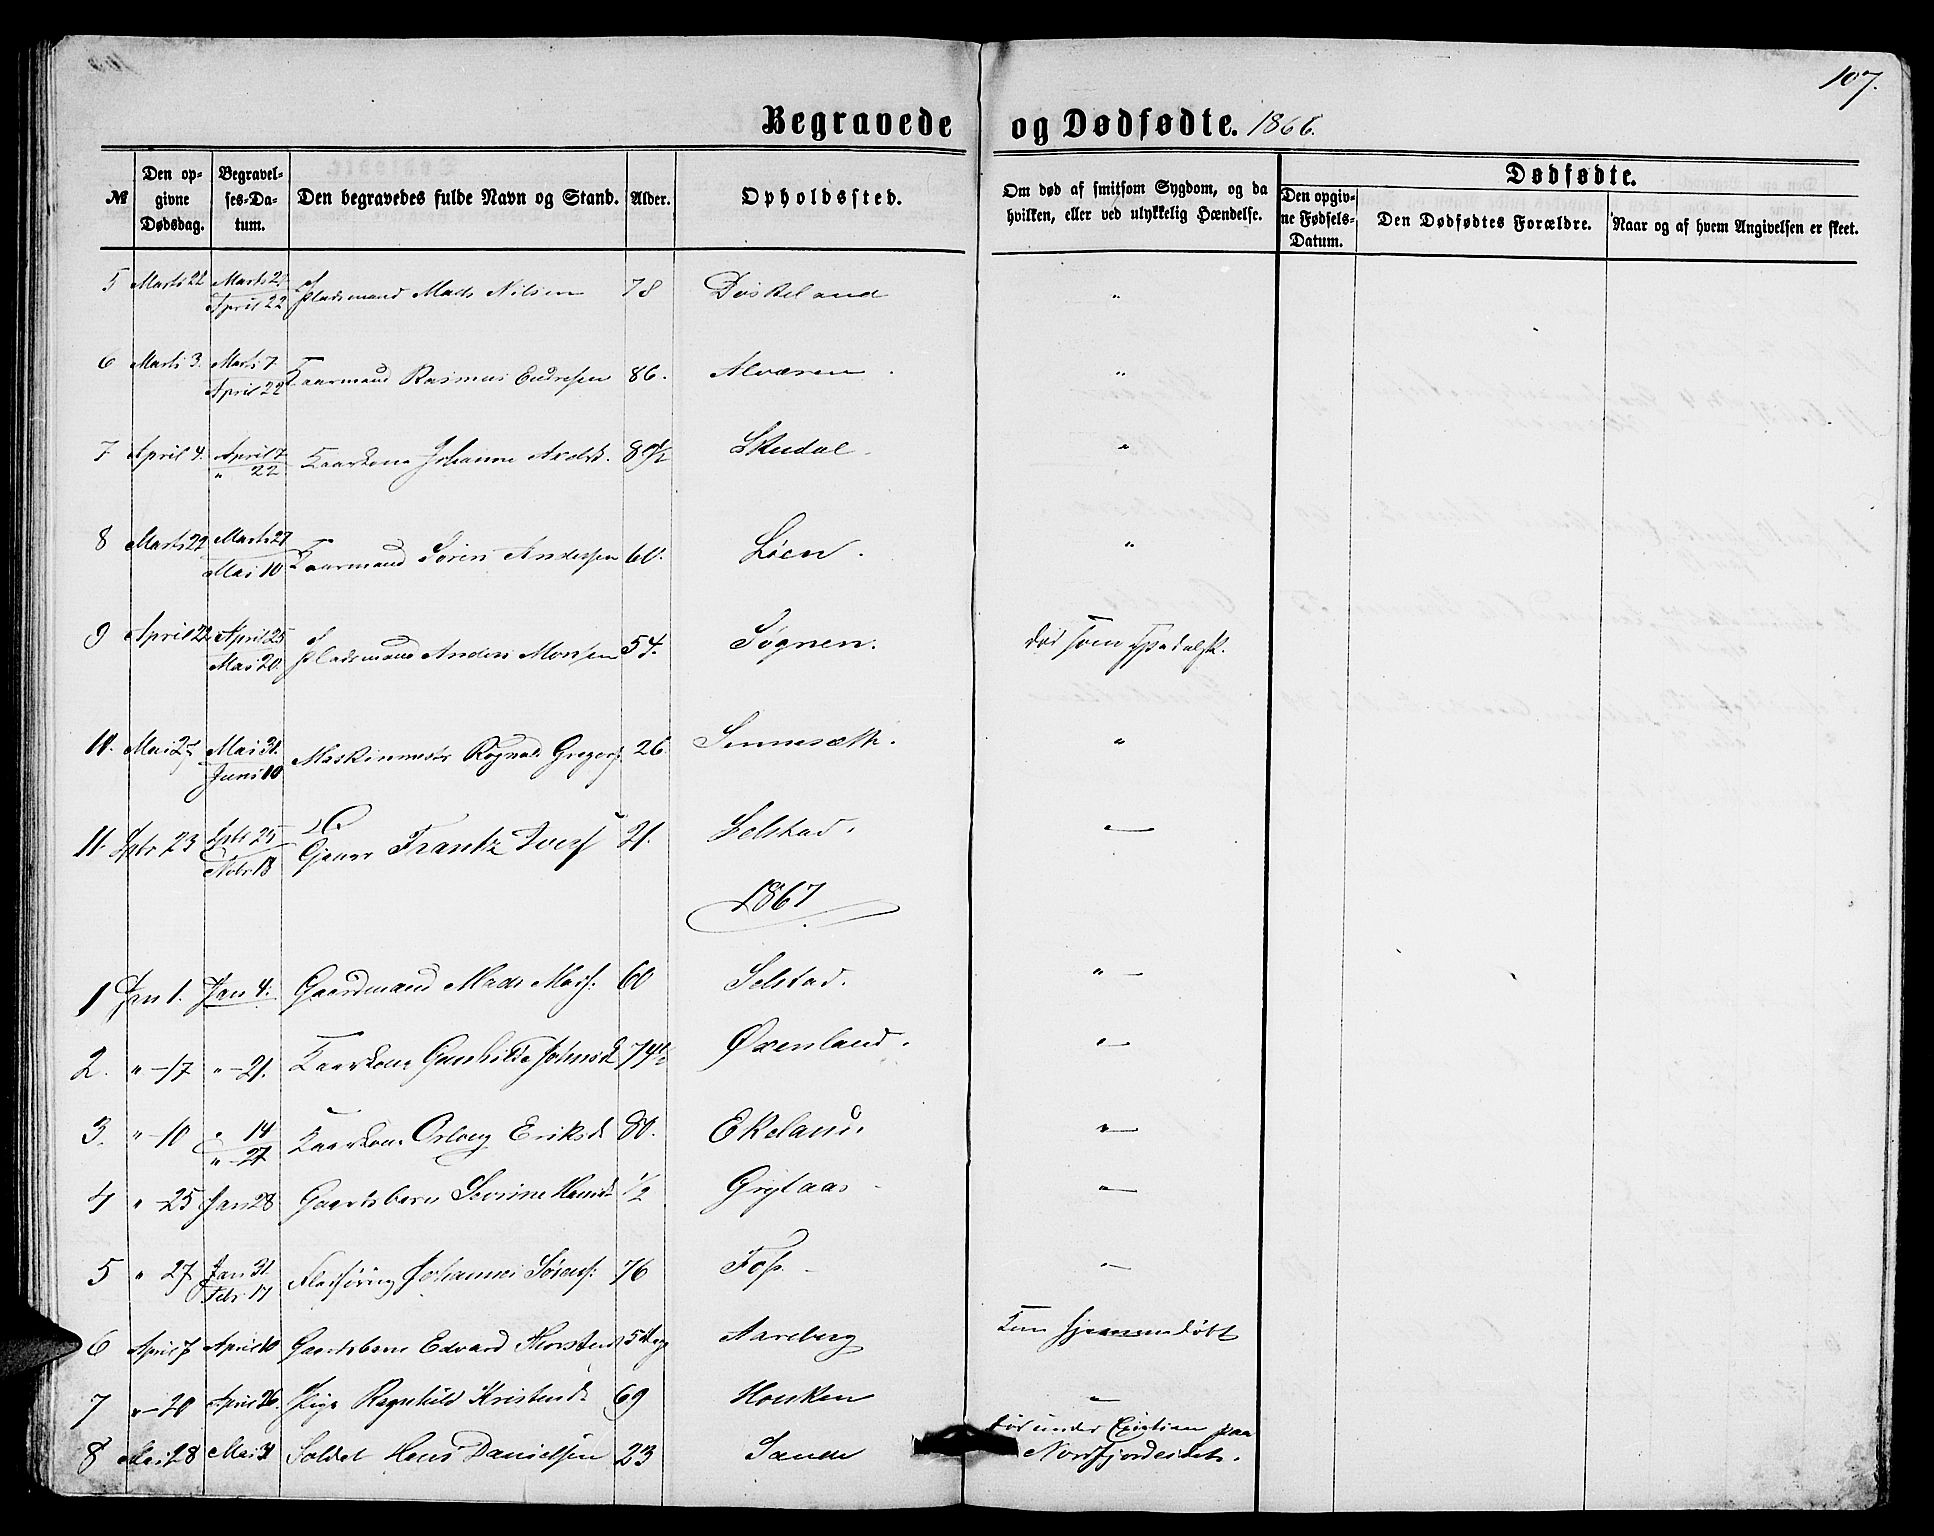 107.
Begravede og Dødfødte. 1866.
№ Den opgivne Dødsdag. Begravelses-Datum. Den begravedes fulde Navn og Stand. Alder. Opholdssted. Om død af smitsom Sygdom, og da hvilken, eller ved ulykkelig Hændelse. Dødfødte.
Den opgivne Fødsels-Datum. Den Dødfødtes Forældre. Naar og af hvem Angivelsen er skeet.
5 Marts 22 April 22 Pladsmand Mads Nilsen 78 Døskeland "
6 Marts 3. Marts 7 April 22 Kaarmand Rasmus Endresen 86. Alværen "
7 April 4. April 7 " 22 Kaarkone Johanne 89½ Skudal. "
8 Marts 22 Marts 27 Mai 10 Kaarmand Sören Andersen 60. Löen. "
9 April 22 April 25 Mai 20. Pladsmand Anders Monsen 54. Søgnen. død som spedalsk.
10. Mai 27 Mai 31. Juni 10 Maskinmester 26. "
11. Sptr 23 Sptr 25 Nobr 18 Frantz Iversf 21. Selstad. "
1867
1 Jan 1. Jan 4. Gaardmand Mads 60 Selstad. "
2. " 17 " 21. Kaarkone Gunhilde Johnsd. 74½ Øxenland. "
3. " 10 " 14 " 27 Kaarkone Eriksd. 80. Ekeland. "
4 " 25 Jan 28 Gaardsbarn ½ Grytaas "
5 " 27 Jan 31 Febr 17 Johannes Sörens. 76 Foss "
6 April 7 April 10 Gaardsbarn Edvard 5 Aareberg Kun hjemmedöbt
7 " 20 April 26. Pige Ragnhild Kristensd. 69 "
8 Mai 28 Mai 31 Soldat Hans Danielsen 23 Sande død under paa Nordfjordeidet.